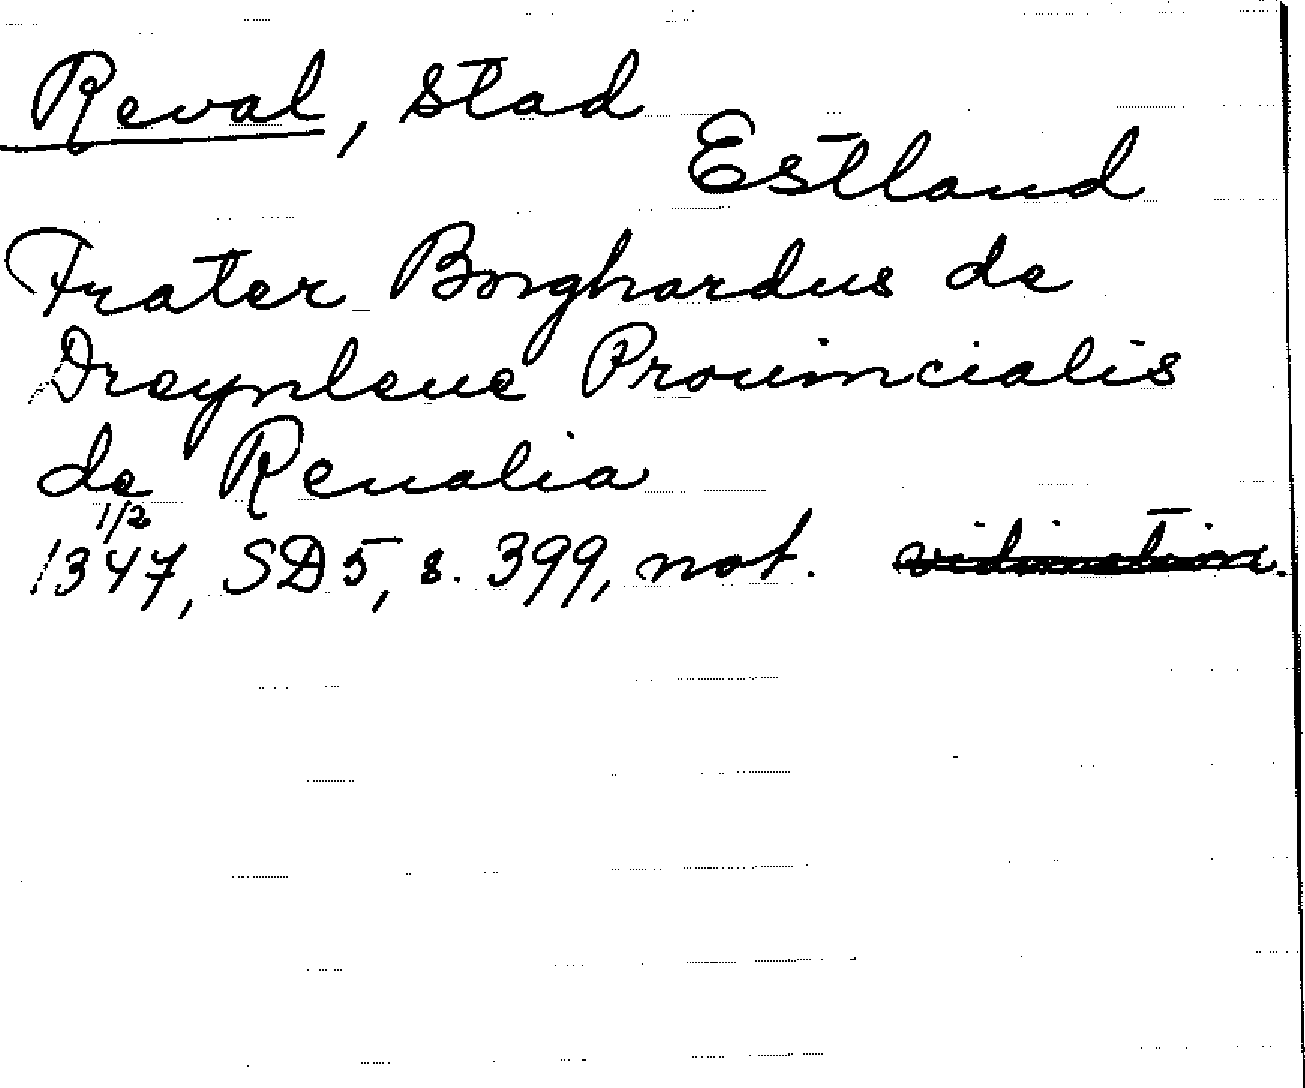 Reval, stad
Estland
Frater Borghardus de
Dreynleue Prouincialis
de Reualia
1/2
1347, SD5, s. 399, not.